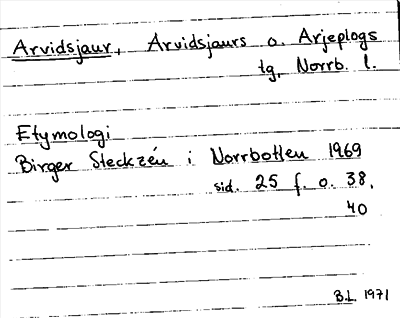 Arvidsjaur, Arvidsjaurs o. Arjeplogs
tg, Norrb. l.
Etymologi
Birger Steckzén i Norrbotten 1969
sid. 25 f. o. 38,
40
B.L. 1971